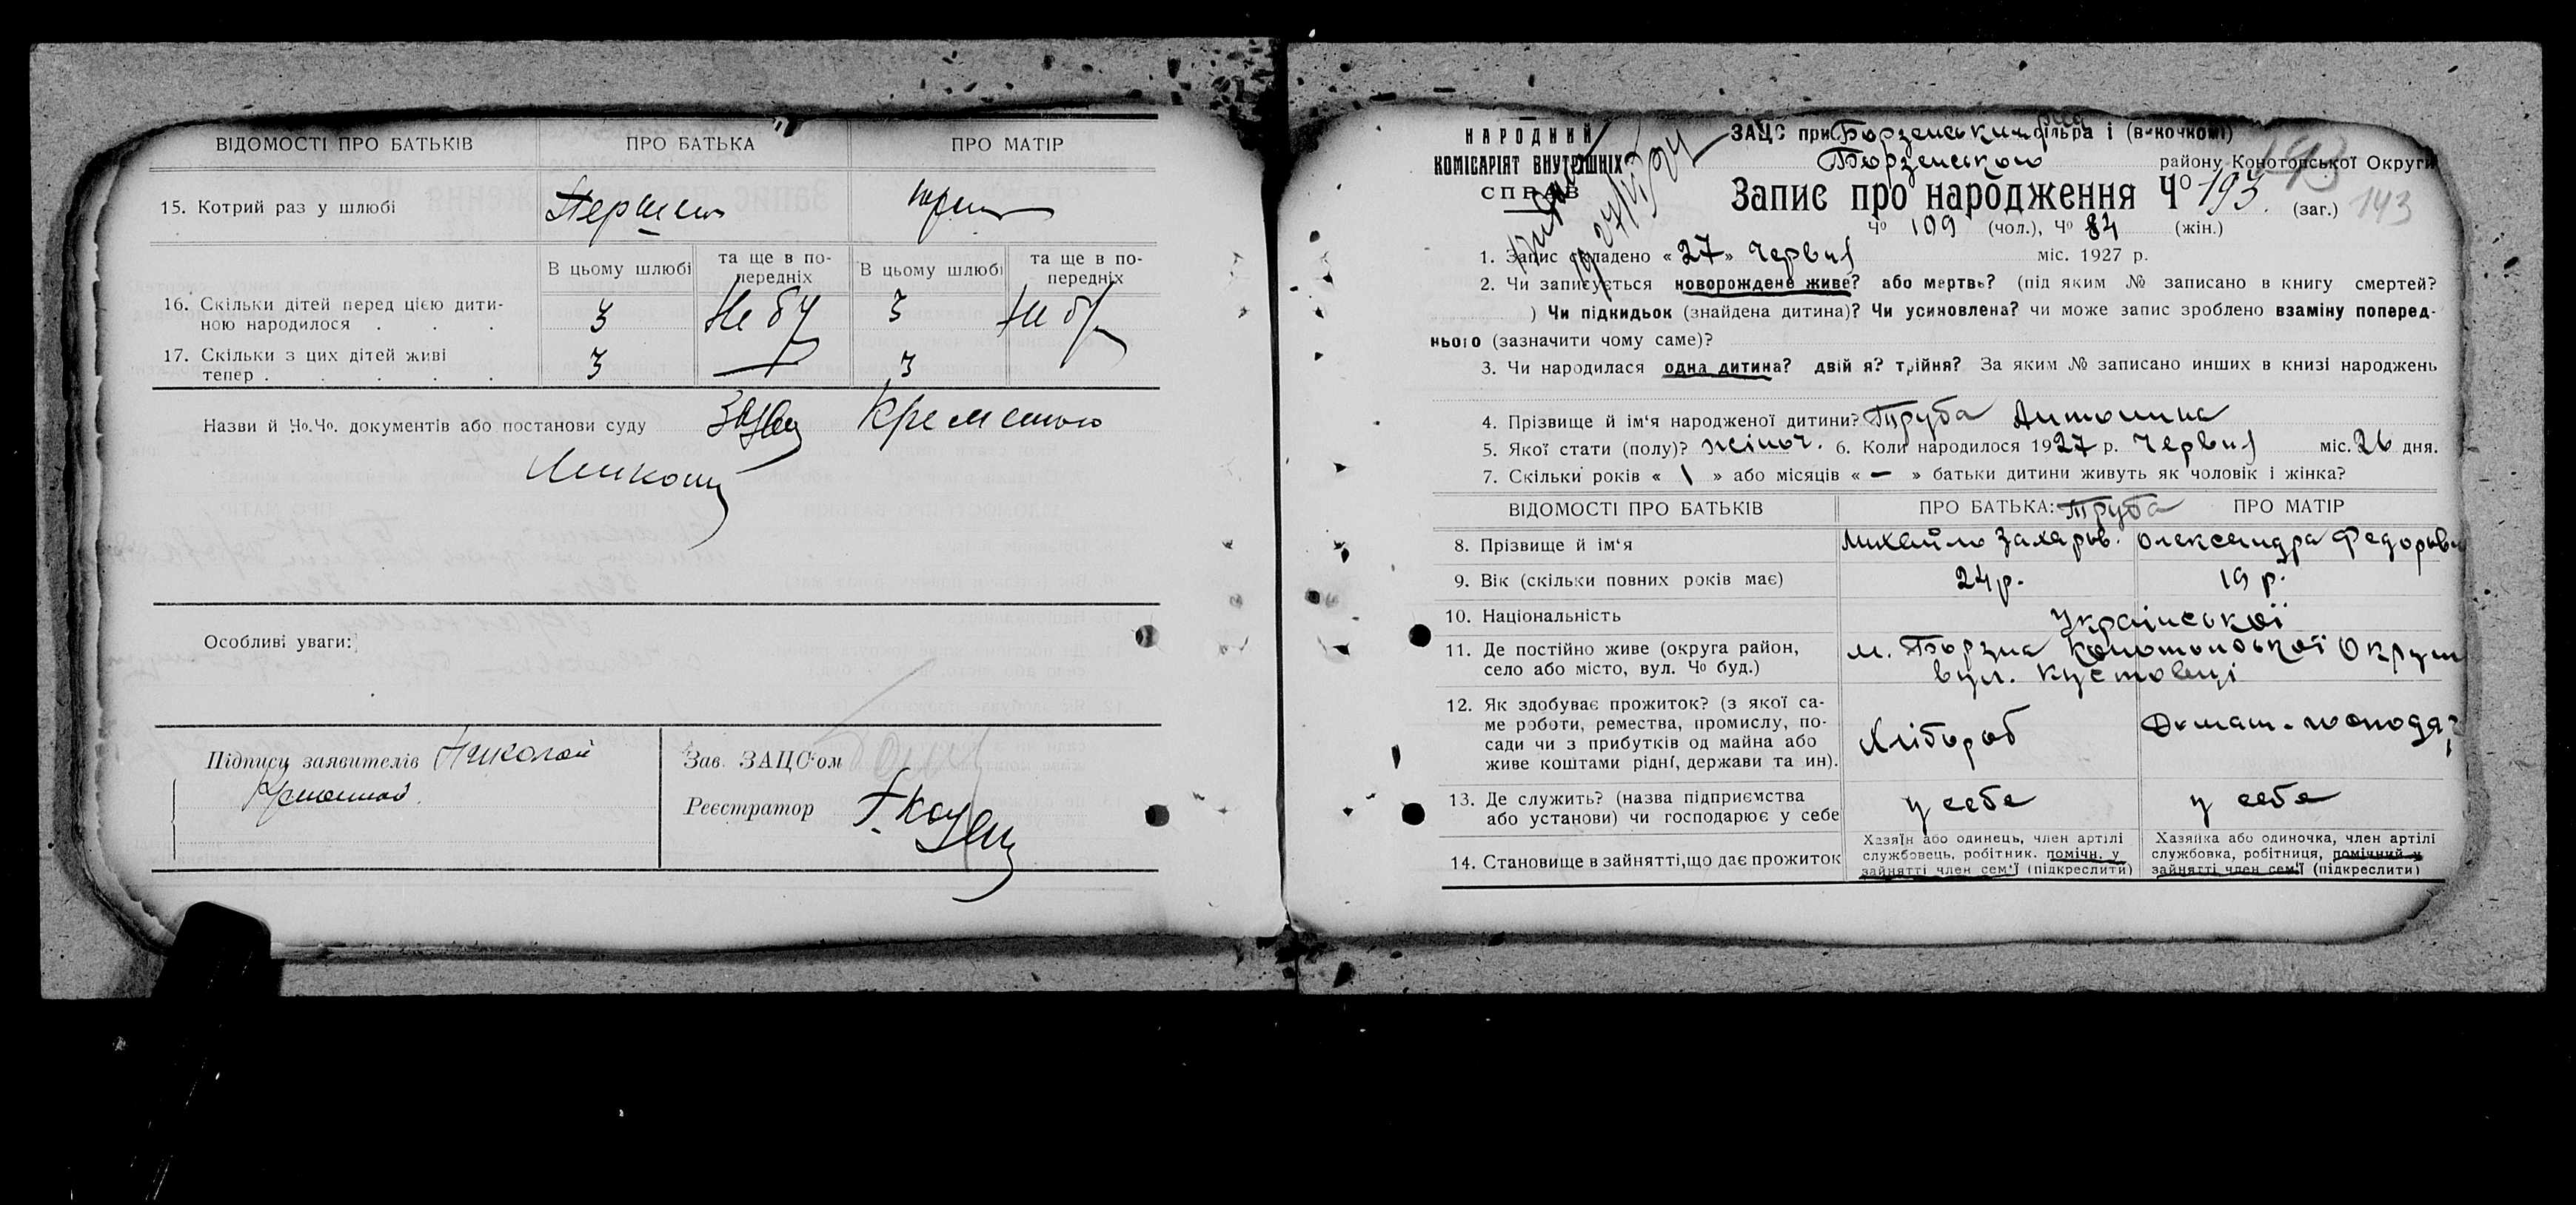 ВІДОМОСТІ ПРО БАТЬКІВ ПРО БАТЬКА ПРО МАТІР
15. Котрий раз у шлюбі
В цьому шлюбі та ще в по- передніх В цьому шлюбі та ще в по- передніх
16. Скільки дітей перед цією дити-
ною народилося . . . 3 Не бу 3 Не б
17. Скільки з цих дітей живі
тепер . . . . . 3 — 3
Назви й Чо.Чо. документів або постанови суду Заяву Кременого
Миколи
Особливі уваги:
Підписи заявителів Николай
Зав. ЗАЦС'ом
Реєстратор
НАРОДНИЙ
КОМІСАРІЯТ ВНУТРІШНІХ
СПРАВ
ЗАЦС при Борзенським рай
Борзенського району Конотопської Округи
Запис про народження Чо 193 (заг.) 143
Чо 109 (чол.), Чо 84 (жін.)
1. Запис складено « 27 » Червня міс. 1927 р.
2. Чи записується новорождене живе? або мертве? (під яким № записано в книгу смертей?
) Чи підкидьок (знайдена дитина)? Чи усиновлена? чи може запис зроблено взаміну поперед-
нього (зазначити чому саме)?
3. Чи народилася одна дитина? двійня? трійня? За яким № записано инших в книзі народжень
4. Прізвище й ім'я народженої дитини? Труба Антонина
5. Якої стати (полу)? жіноч. 6. Коли народилося 1927 р. Червня міс. 26 дня.
7. Скільки років « 1 » або місяців « — » батьки дитини живуть як чоловік і жінка?
ВІДОМОСТІ ПРО БАТЬКІВ ПРО БАТЬКА: Труба ПРО МАТІР
8. Прізвище й ім'я Михайло Захаров. Олександра Федоровн
9. Вік (скільки повних років має) 24 р. 19 р.
10. Національність Української
11. Де постійно живе (округа район, м. Борзна Конотопської Округи
село або місто, вул. Чо буд.) вул. Кустовці
12. Як здобуває прожиток? (з якої са-
ме роботи, ремества, промислу, по-
сади чи з прибутків од майна або Хлібороб Домаш. господар
живе коштами рідні, держави та ин).
13. Де служить? (назва підприємства у себе у себе
або установи) чи господарює у себе
14. Становище в зайнятті, що дає прожиток
Хазяїн або одинець, член артілі
службовець, робітник, помічн. у
зайнятті член сем'ї (підкреслити)
Хазяйка або одиночка, член артілі
службовка, робітниця, помічний у
зайнятті член сем'ї (підкреслити)